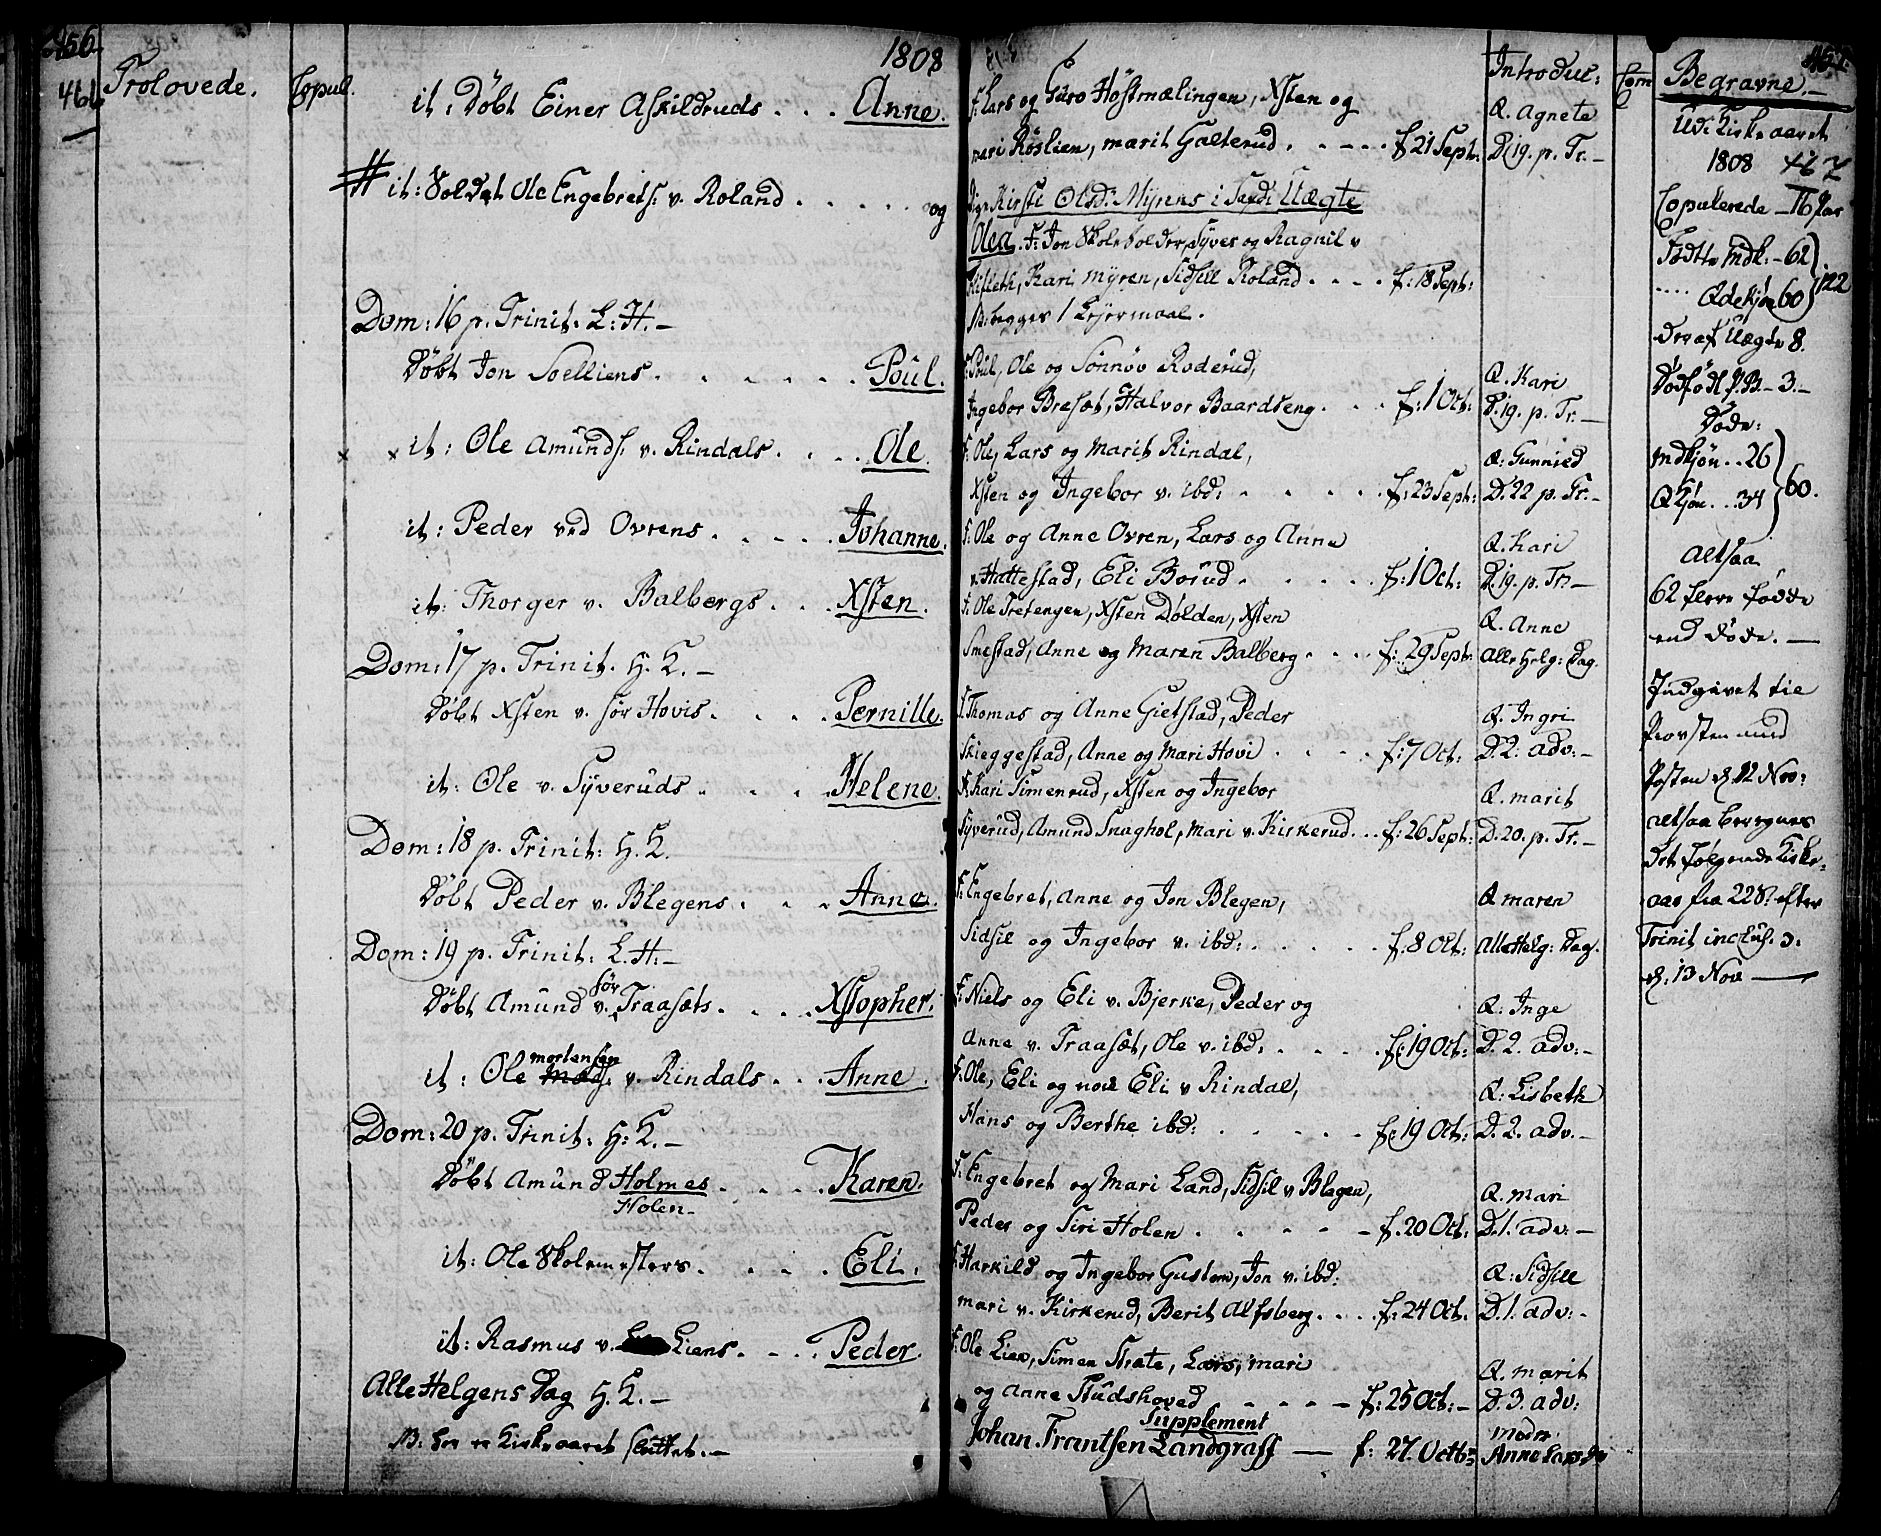 456.
466
Trolovede.
Copul.
1808
it: Døbt Einer Askildruds . . . Anne.
# it: Soldat Ole Engebrets: v. Roland . . . . . og
Dom: 16 p. Trinit. L: H. –
Døbt Jon Soelliens . . . . . . Poul.
x x it: Ole Amunds: v. Rindals . . . . Ole.
it: Peder ved Ovrens . . . . . Johanne.
it: Thorger v. Balbergs . . . Xsten.
Dom: 17 p. Trinit. H. K. –
Døbt Xsten v. sør Hovis . . . . Pernille.
it: Ole v. Syveruds . . . . Helene.
Dom: 18 p. Trinit: H. K.
Døbt Peder v. Blegens . . . Anne.
Dom: 19 p. Trinit: L. H: –
sør
Døbt Amund v. Traasets . . . . Xstopher.
mortensen
it: Ole Mads: v. Rindals . . . Anne.
Dom: 20 p. Trinit: H: K. –
Døbt Amund Holmes . . . . Karen.
Holen –
it: Ole Skolemesters . . . . Eli.
it: Rasmus v. Liens . . . . Peder.
Alle Helgens Dag H. K. –
NB: her er Kirkeaaret sluttet. –
F: Lars og Guro Høstmælingen, Xsten og
mari Røslien, marit Galterud . . . . . f: 21 Sept:
Kirsti Olsd: Myrens i Uægte
Olea. F: Jon Skoleholder, Syver og Ragnil v
Kifleth, Kari myren, Sidsell Roland . . . . f: 18 Sept:
begges 1 Lejermaal.
F: Poul, Ole og Sønnøv Roderud,
Ingebor Bresæt, Halvor Baardseng . . . f: 1 Oct:
F: Ole, Lars og Marit Rindal,
Xsten og Ingebor v. ibd: . . . . . f: 23 Sept:
F: Ole og Anne Ovren, Lars og Anne
v. Hattestad, Eli Borud . . . . . f: 1 Oct:
F: Ole Tretengen, Xsten Dolden, Xsten
Smestad, Anne og Maren Balberg . . . . f: 29 Sept:
F: Thomas og Anne Gietstad, Peder
Skieggestad, Anne og Mari Hovi . . . . . f: 7 Oct:
F: Kari Simenrud, Xsten og Ingebor
Syverud, Amund Snaghol, Mari v. Kirkerud . . . f: 26 Sept:
F: Engebret, Anne og Jon Blegen,
Sidsil og Ingebor v. ibd: . . . . . f: 8 Oct:
F: Niels og Eli v. Bjerke, Peder og
Anne v. Traaset, Ole v. ibd: . . . . f: 19 Oct:
F: Ole, Eli og Eli v Rindal,
Hans og Berthe ibd: . . . . . f: 19 Oct:
F: Engebret og Mari Land, Sidsil v Blegen,
Peder og Siri Holen . . . . . f: 20 Oct:
F: Harkild og Ingebor Gustem, Jon v. ibd:
mari v. Kirkerud, Berit Alfsberg . . . . f: 24 Oct.
F: Ole Lien, Simen Strate, Lars, mari
og Anne Studshoved . . . . . f: 25 Oct: –
Supplement
Johan Frantsen Landgraff — f: 27. Octb:
Introduc:
Q. Agnete
D. 19. p. Tr. –
Q. Kari
D. 19. p. Tr. –
Q: Gunnild
D. 22 p. Tr. –
Q. Kari
D. 19. p. Tr. –
Q. Anne
Alle Helg: Dag.
Q. Ingri
D. 2. adv: –
Q. marit
D. 20. p. Tr. –
Q maren
Alle Helg: Dag.
Q: Inge
D. 2. adv: –
Q: Lisbeth
D. 2. adv. –
Q. mari
D. 1. adv: –
Q: Sidsill
D. 1. adv: –
Q. marit
D. 3. adv:
modr.
Anne Larsdr
457.
Begravne. –
Udi Kirkeaaret
1808 467
Copulerede – 16 Par
Fødte Mdk: – 62
Qdekjøn 60 } 122
deraf Uægte 8.
Dødfødt – 3. –
Døde:
Mdkjøn . . 26
Qkjøn . . . 34 } 60.
altsaa
62 flere fødde
end døde. —
Indgivet til
Provsten med
Posten d. 12 Nov:
altsaa beregnes
det følgende Kirke-
aar fra 22 S. efter
Trinit inclus. ɔ:
d. 13 Nov —